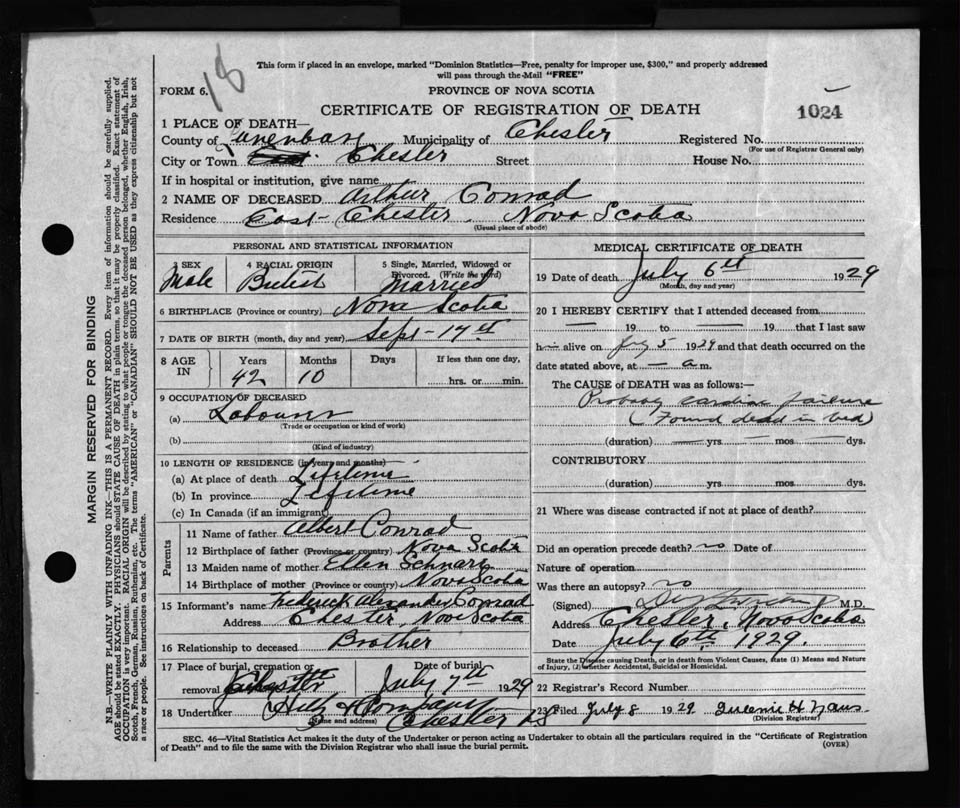 18
This form if placed in an envelope, marked "Dominion Statistics—Free, penalty for improper use, $300," and properly addressed
will pass through the Mail "FREE"
FORM 6. PROVINCE OF NOVA SCOTIA
CERTIFICATE OF REGISTRATION OF DEATH 1024
1 PLACE OF DEATH—
County of Lunenburg Municipality of Chester Registered No.
(For use of Registrar General only)
City or Town Chester Street House No.
If in hospital or institution, give name
2 NAME OF DECEASED Arthur Conrad
Residence East Chester. Nova Scotia
(Usual place of abode)
PERSONAL AND STATISTICAL INFORMATION
3 SEX 4 RACIAL ORIGIN 5 Single, Married, Widowed or
Divorced. (Write the word)
Male British Married
6 BIRTHPLACE (Province or country) Nova Scotia
7 DATE OF BIRTH (month, day and year) Sept- 17th
8 AGE IN Years Months Days If less than one day,
42 10 hrs. or min.
9 OCCUPATION OF DECEASED
(a) Labourer
(Trade or occupation or kind of work)
(b)
(Kind of industry)
10 LENGTH OF RESIDENCE (in years and months)
(a) At place of death Lifetime
(b) In province Lifetime
(c) In Canada (if an immigrant)
Parents
11 Name of father Albert Conrad
12 Birthplace of father (Province or country) Nova Scotia
13 Maiden name of mother Ellen
14 Birthplace of mother (Province or country) Nova Scotia
15 Informant's name Frederick Alexander Conrad
Address Chester, Nova Scotia
16 Relationship to deceased Brother
17 Place of burial, cremation or Date of burial
removal July 7th 1929
18 Undertaker & Company
(Name and address) Chester NS
MEDICAL CERTIFICATE OF DEATH
19 Date of death July 6th 1929
(Month, day and year)
20 I HEREBY CERTIFY that I attended deceased from
— 19 to — 19 that I last saw
him alive on July 5 1929 and that death occurred on the
date stated above, at — a.m.
The CAUSE of DEATH was as follows:—
Probably cardiac failure
(Found dead in bed)
(duration) — yrs. — mos. — dys.
CONTRIBUTORY
(duration) yrs. mos. dys.
21 Where was disease contracted if not at place of death?
Did an operation precede death? no Date of
Nature of operation
Was there an autopsy? no
(Signed) M.D.
Address Chester, Nova Scotia
Date July 6th 1929.
State the Disease causing Death, or in death from Violent Causes, state (1) Means and Nature
of Injury, (2) whether Accidental, Suicidal or Homicidal.
22 Registrar's Record Number
23 Filed July 8 1929
(Division Registrar)
SEC. 46—Vital Statistics Act makes it the duty of the Undertaker or person acting as Undertaker to obtain all the particulars required in the "Certificate of Registration
of Death" and to file the same with the Division Registrar who shall issue the burial permit. (OVER)
MARGIN RESERVED FOR BINDING
N.B.—WRITE PLAINLY WITH UNFADING INK—THIS IS A PERMANENT RECORD. Every item of information should be carefully supplied.
AGE should be stated EXACTLY. PHYSICIANS should STATE CAUSE OF DEATH in plain terms, so that it may be properly classified. Exact statement of
OCCUPATION is very important. RACIAL ORIGIN will be described by stating to what people or tongue the deceased person belonged, whether English, Irish,
Scotch, French, German, Russian, Ruthenian, etc. The terms "AMERICAN" or "CANADIAN" SHOULD NOT BE USED as they express citizenship but not
a race or people. See instructions on back of Certificate.